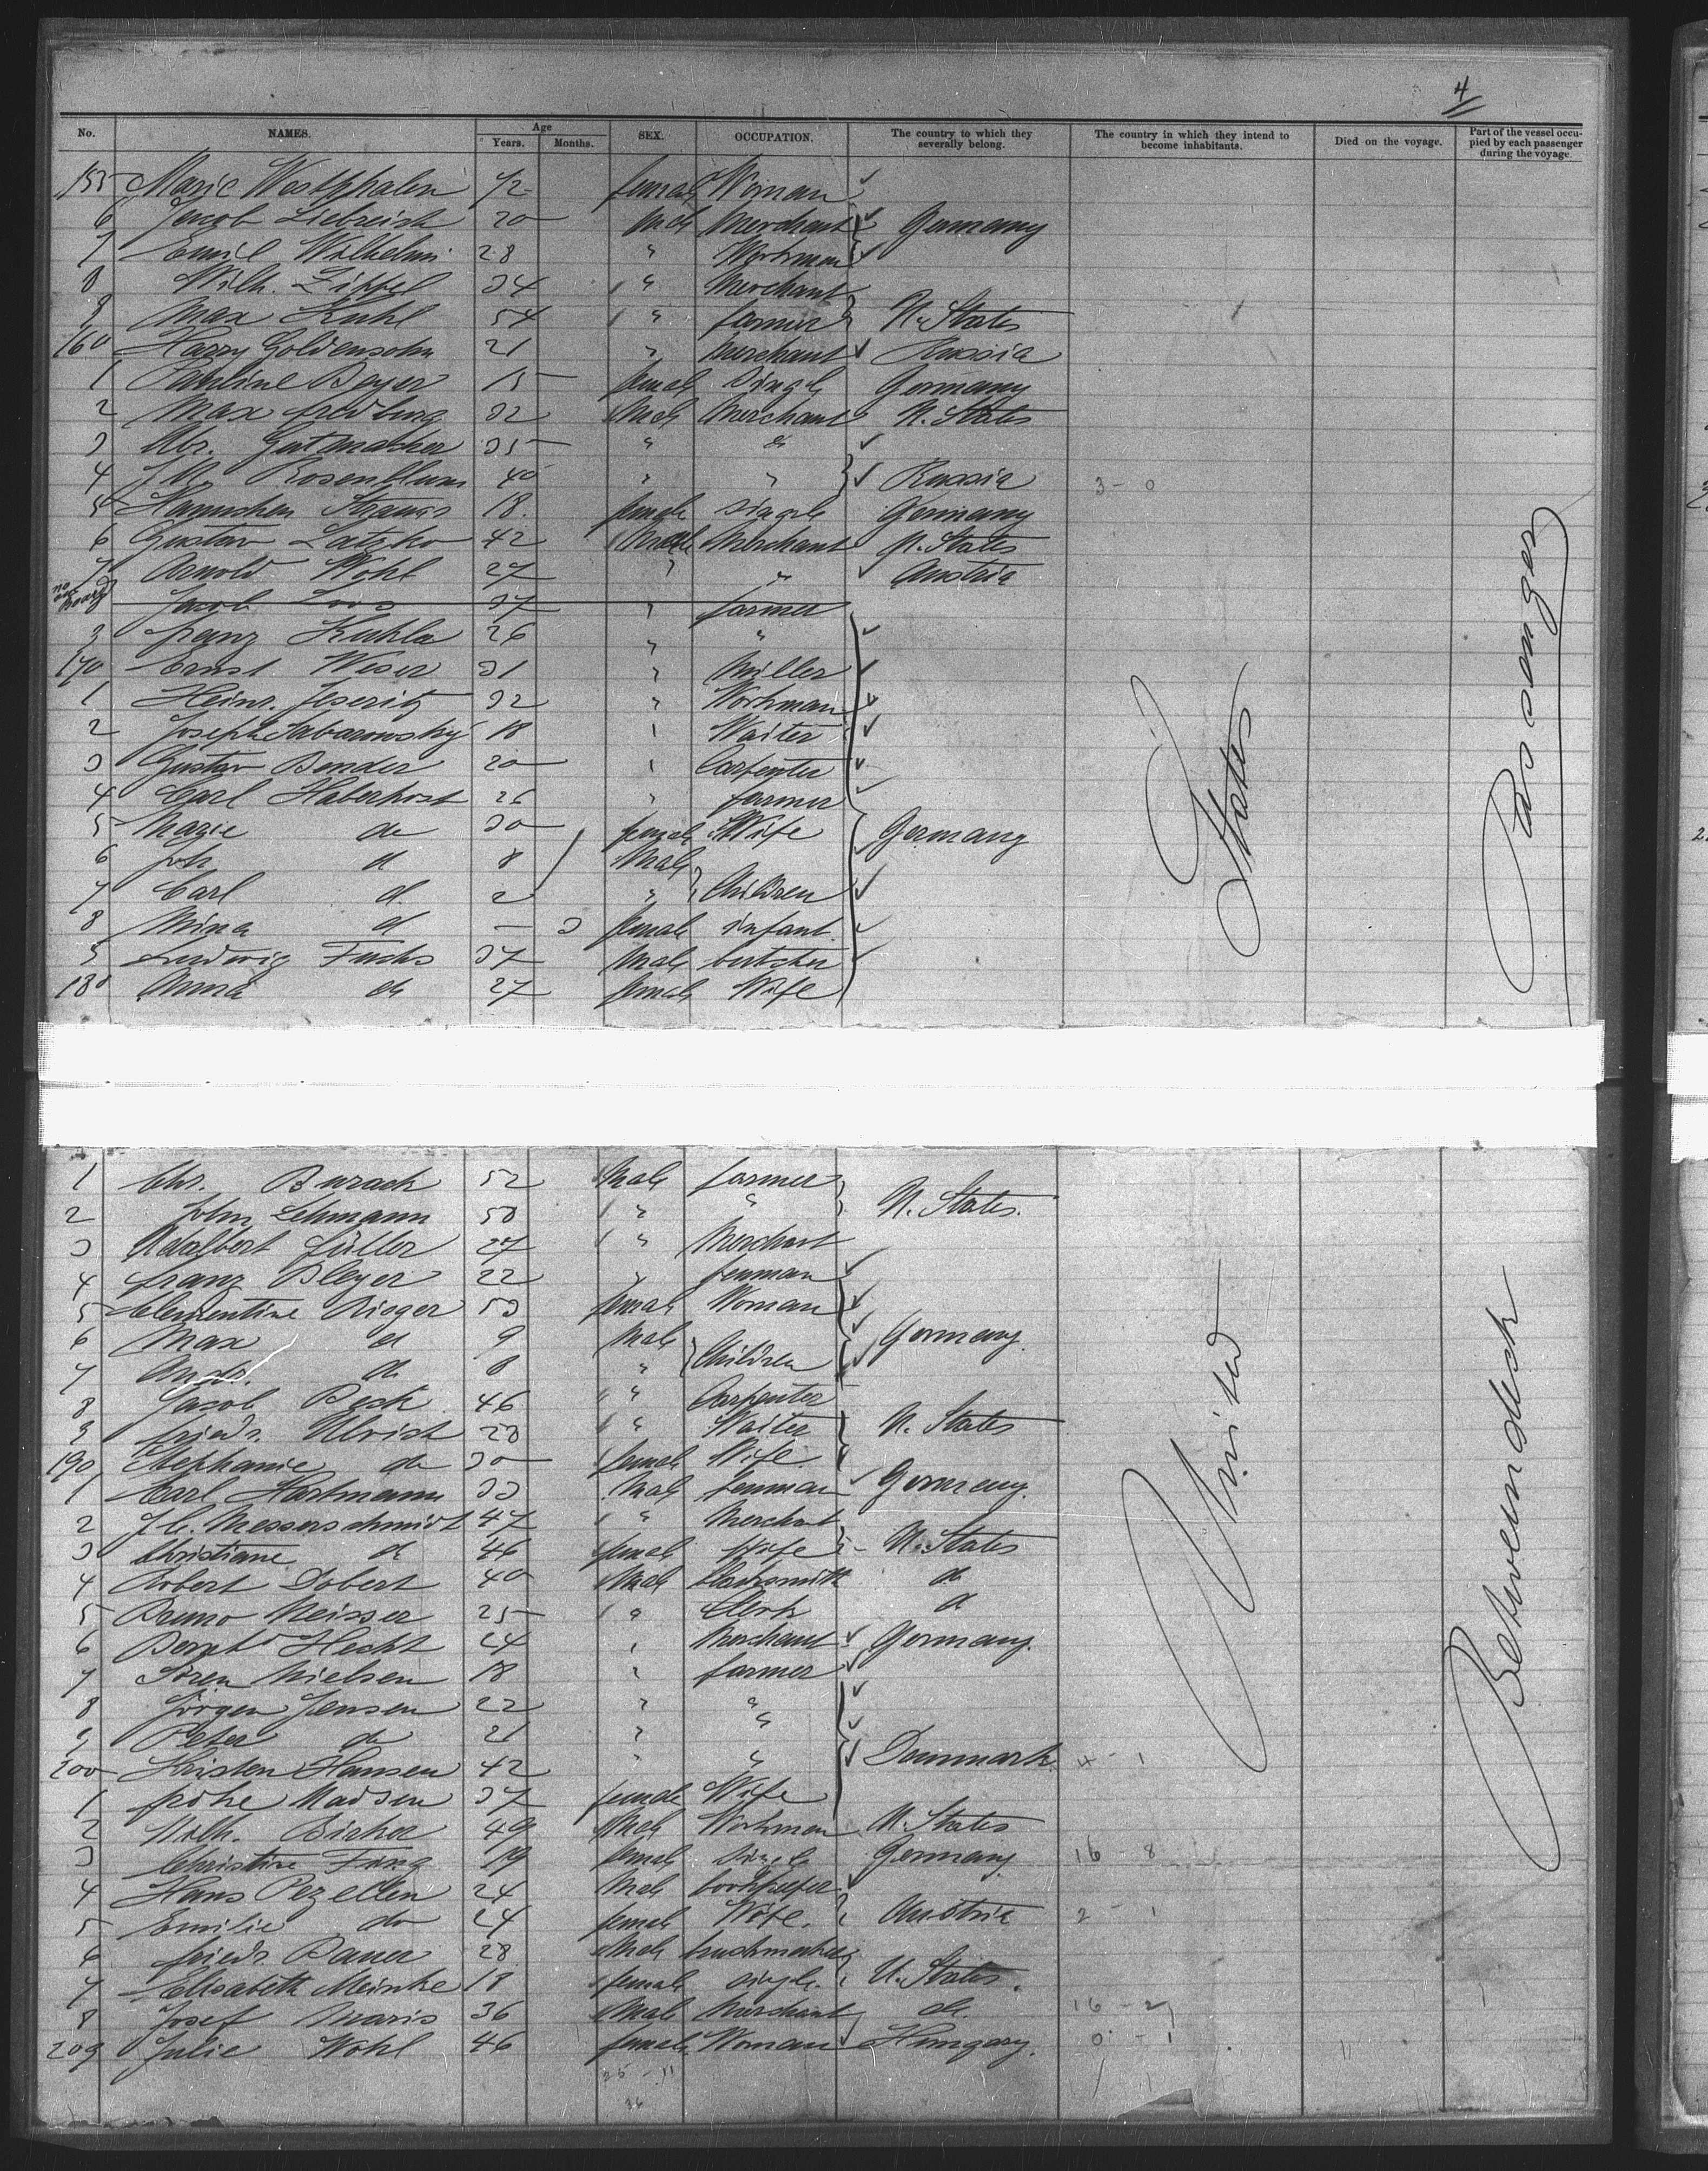 4
No. NAMES. Age Years. Months. SEX. OCCUPATION. The country to which they severally belong. The country in which they intend to become inhabitants. Died on the voyage. Part of the vessel occupied by each passenger during the voyage.
155 Marie Westphalen 42 female Woman
6 Jacob Liebreich 20 Male Merchant Germany
7 Emil Wilhelmi 28 " Workman
8 Wilh. Zippel 34 " Merchant
9 Max Kuhl 54 " farmer U. States
160 Harry Goldensohn 21 " Merchant Russia
1 Pauline Beyer 15 female Single Germany
2 Max Friedburg 32 Male Merchant U. States
3 Abr. Gutmacher 35 " "
4 Rosenblum 40 " " Russia 3 - 0
5 Hannchen Strauss 18. female single Germany
6 Gustav Latzko 42 Male Merchant U. States
7 Arnold Wohl 27 " " Austria
not on Board Jacob Loos 37 " farmer
9 Franz Kuhla 26 " "
170 Ernst Weser 31 " Miller
1 Heinr. Jeseritz 32 " Workman
2 Joseph Sabarowsky 18 " Waiter
3 Gustav Bender 20 " Carpenter
4 Carl Haberhost 26 " farmer
5 Marie do 30 female Wife Germany
6 Joh. do 8 Male
7 Carl do 2 " Children
8 Mina do — 3 female infant
9 Ludwig Fuchs 37 Male butcher
180 Anna do 27 female Wife
1 Chr. Burack 52 Male farmer
2 John Lehmann 50 " " U. States.
3 Adalbert Füller 27 " Merchant
4 Franz Bleyer 22 " fenman
5 Clementine Rieger 53 female Woman
6 Max do 9 Male Germany.
7 Andr. do 8 " Children
8 Jacob Beck 46 " Carpenter
9 Friedr. Ulrich 28 " Waiter U. States
190 Stephanie do 30 female Wife
1 Carl Hartmann 33 Male fenman Germany.
2 J. C. Messerschmidt 47 " Merchant
3 Christiane do 46 female Wife U. States
4 Robert Dobert 40 Male blacksmith do
5 Bruno Meisser 25 " Clerk do
6 Bernhd Hecht 24 " Merchant Germany.
7 Sören Nielsen 18 " farmer
8 Jörgen Jensen 22 " "
9 Peter do 21 " "
200 Kristen Hansen 42 " " Denmark. 4 - 1
1 Madsen 37 female Wife
2 Wilh. Birker 49 Male Workman U. States
3 Christine 19 female Single Germany 16 - 8
4 Hans Pezellen 24 Male bookkeeper
5 Emilie do 24 female Wife. Austria 2 - 1
6 Friedr. Bauer 28 Male
7 Elisabeth Meinke 18 female single. U. States.
8 Josef Maris 36 Male Merchant do.
209 Julie Wohl 46 female Woman Hungary. 0 - 1
25 - 11
36
United States
Betweendeck Passenger